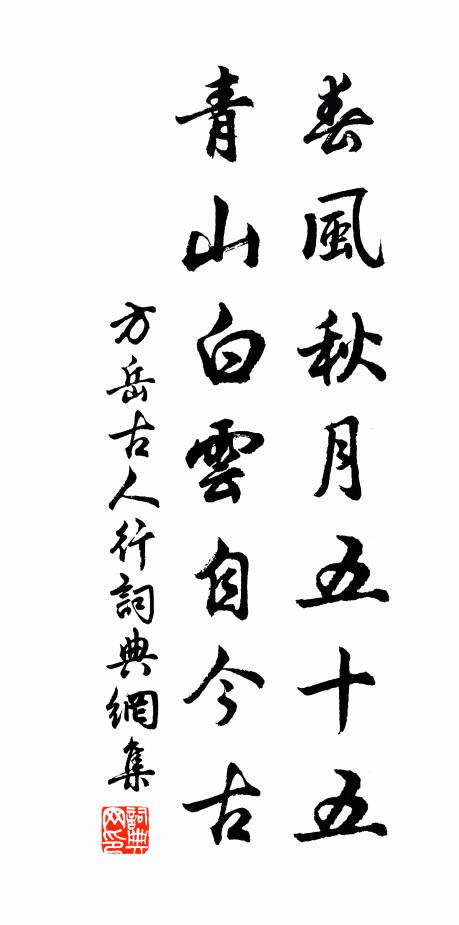 春風秋月五十五
青山白雲自今古
方岳古人行詞典網集
詞典网印